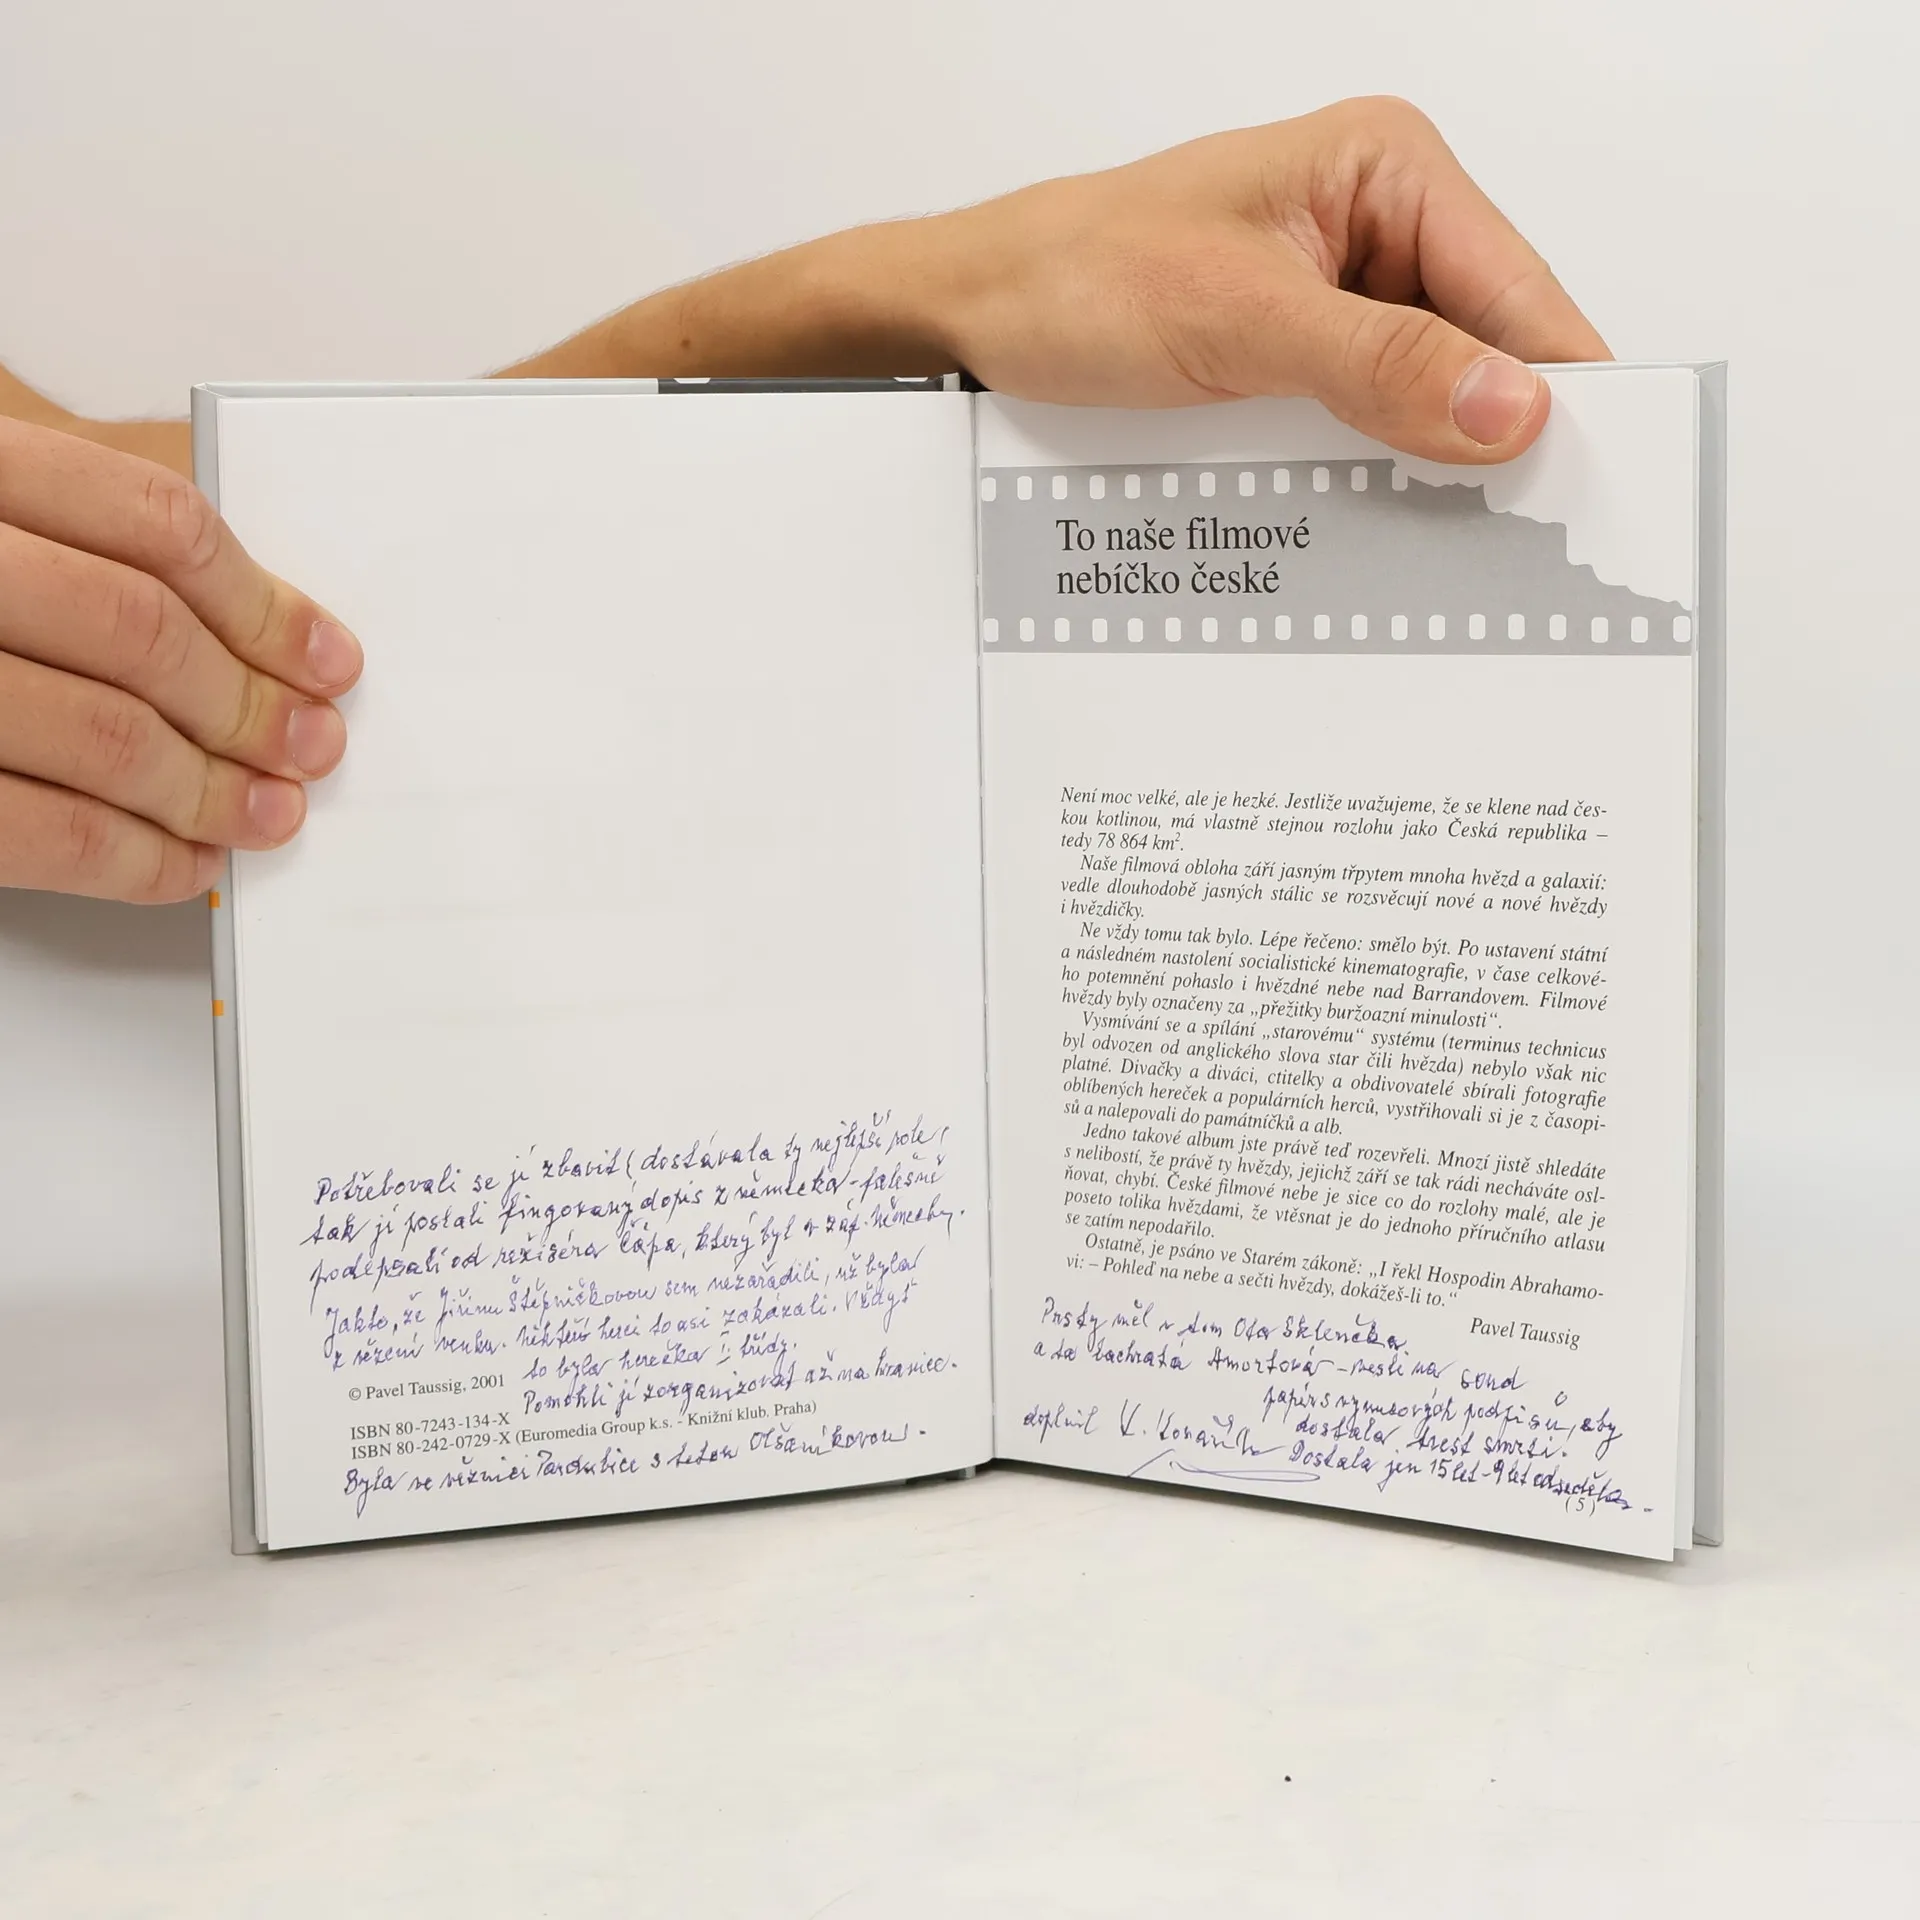 Potřebovali se jí zbavit (dostávala ty nejlepší role,
tak jí poslali fingovaný dopis z německa - falešně
podepsali od režiséra Čápa, který byl v záp. německu.
Jakto, že Jiřinu Štěpničkovou sem nezařadili, už byla
z vězení venku. někteří herci to asi zakázali. Vždyť
to byla herečka I. třídy.
Pomohli jí zorganizovat až na hranice.
© Pavel Taussig, 2001
ISBN 80-7243-134-X
ISBN 80-242-0729-X (Euromedia Group k.s. - Knižní klub. Praha)
Byla ve věznici Pardubice s tetou Olšaníkovou.
To naše filmové
nebíčko české
Není moc velké, ale je hezké. Jestliže uvažujeme, že se klene nad čes-
kou kotlinou, má vlastně stejnou rozlohu jako Česká republika –
tedy 78 864 km².
Naše filmová obloha září jasným třpytem mnoha hvězd a galaxií:
vedle dlouhodobě jasných stálic se rozsvěcují nové a nové hvězdy
i hvězdičky.
Ne vždy tomu tak bylo. Lépe řečeno: smělo být. Po ustavení státní
a následném nastolení socialistické kinematografie, v čase celkové-
ho potemnění pohaslo i hvězdné nebe nad Barrandovem. Filmové
hvězdy byly označeny za „přežitky buržoazní minulosti“.
Vysmívání se a spílání „starovému“ systému (terminus technicus
byl odvozen od anglického slova star čili hvězda) nebylo však nic
platné. Divačky a diváci, ctitelky a obdivovatelé sbírali fotografie
oblíbených hereček a populárních herců, vystřihovali si je z časopi-
sů a nalepovali do památníčků a alb.
Jedno takové album jste právě teď rozevřeli. Mnozí jistě shledáte
s nelibostí, že právě ty hvězdy, jejichž září se tak rádi necháváte osl-
ňovat, chybí. České filmové nebe je sice co do rozlohy malé, ale je
poseto tolika hvězdami, že vtěsnat je do jednoho příručního atlasu
se zatím nepodařilo.
Ostatně, je psáno ve Starém zákoně: „I řekl Hospodin Abrahamo-
vi: – Pohleď na nebe a sečti hvězdy, dokážeš-li to.“
Pavel Taussig
Prsty měl v tom Ota Sklenčka.
a ta Amortová - nesli na soud
papír s vynucových podpisů, aby
dostala trest smrti.
doplnil K.
Dostala jen 15 let - 9 let odseděla.
(5)